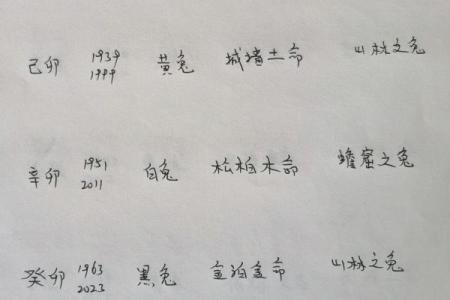 己卯 1939 黄兔 城墙土命 山林之兔
1999
辛卯 1951 白兔 松柏木命 蟾窟之兔
2011
癸卯 1963 黑兔 金泊金命 山林之兔
2023